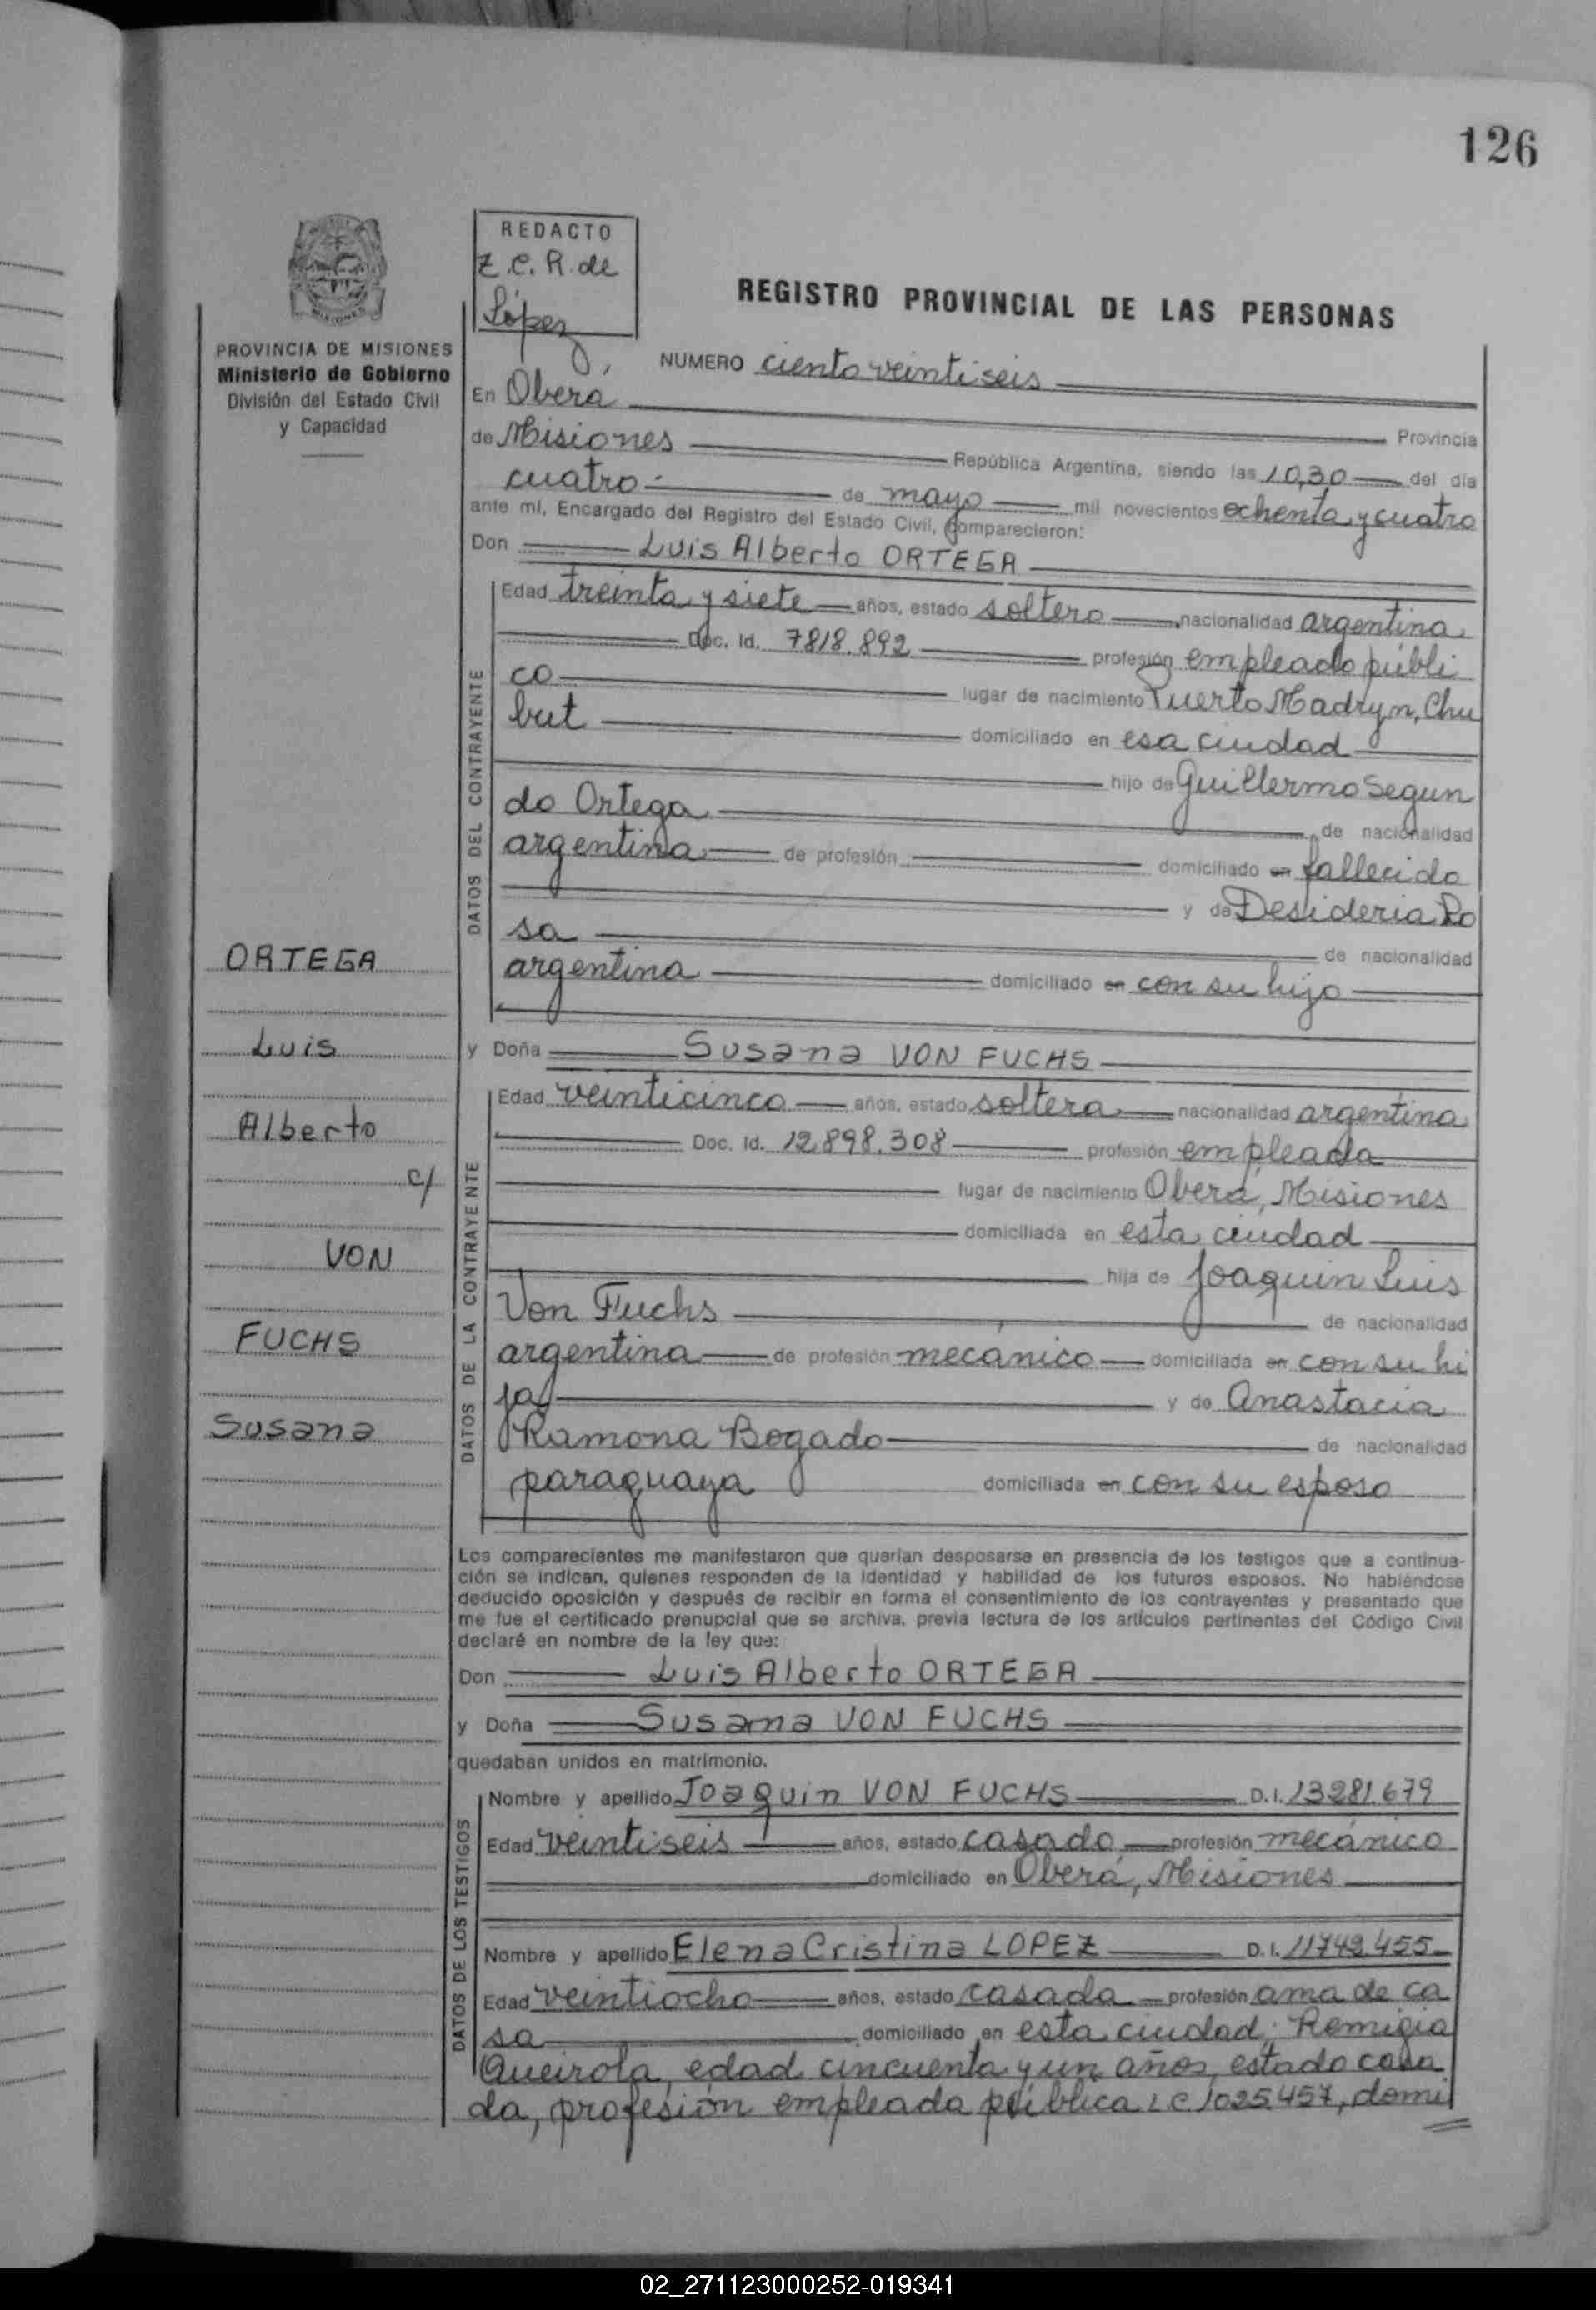 126
REDACTO
Z.C.R. de
López
REGISTRO PROVINCIAL DE LAS PERSONAS
PROVINCIA DE MISIONES
Ministerio de Gobierno
División del Estado Civil
y Capacidad
NUMERO ciento veintiseis
En Oberá
de Misiones Provincia
República Argentina, siendo las 10,30 del día
cuatro de mayo mil novecientos ochenta y cuatro
ante mí, Encargado del Registro del Estado Civil, comparecieron:
Don Luis Alberto ORTEGA
DATOS DEL CONTRAYENTE
Edad treinta y siete años, estado soltero nacionalidad argentina
Doc. Id. 7818.892 profesión empleado públi
co lugar de nacimiento Puerto Madryn, Chu
but domiciliado en esa ciudad
hijo de Guillermo Segun
do Ortega de nacionalidad
argentina de profesión domiciliado en fallecido
y de Desideria Ro
sa de nacionalidad
argentina domiciliado en con su hijo
ORTEGA
Luis
Alberto
c/
VON
FUCHS
Susana
y Doña Susana VON FUCHS
DATOS DE LA CONTRAYENTE
Edad veinticinco años, estado soltera nacionalidad argentina
Doc. Id. 12.898.308 profesión empleada
lugar de nacimiento Oberá, Misiones
domiciliada en esta ciudad
hija de Joaquin Luis
Von Fuchs de nacionalidad
argentina de profesión mecánico domiciliada en con su hi
ja y de Anastacia
Ramona Bogado de nacionalidad
paraguaya domiciliada en con su esposo
Los comparecientes me manifestaron que querían desposarse en presencia de los testigos que a continua-
ción se indican, quienes responden de la identidad y habilidad de los futuros esposos. No habiéndose
deducido oposición y después de recibir en forma el consentimiento de los contrayentes y presentado que
me fue el certificado prenupcial que se archiva, previa lectura de los artículos pertinentes del Código Civil
declaré en nombre de la ley que:
Don Luis Alberto ORTEGA
y Doña Susana VON FUCHS
quedaban unidos en matrimonio.
DATOS DE LOS TESTIGOS
Nombre y apellido Joaquin VON FUCHS D.I. 13281.679
Edad veintiseis años, estado casado profesión mecánico
domiciliado en Oberá, Misiones
Nombre y apellido Elena Cristina LOPEZ D.I. 11742.455
Edad veintiocho años, estado casada profesión ama de ca
sa domiciliado en esta ciudad; Remigia
Queirola, edad cincuenta y un años, estado casa
da, profesión empleada pública L C 1025457, domi
02_271123000252-019341